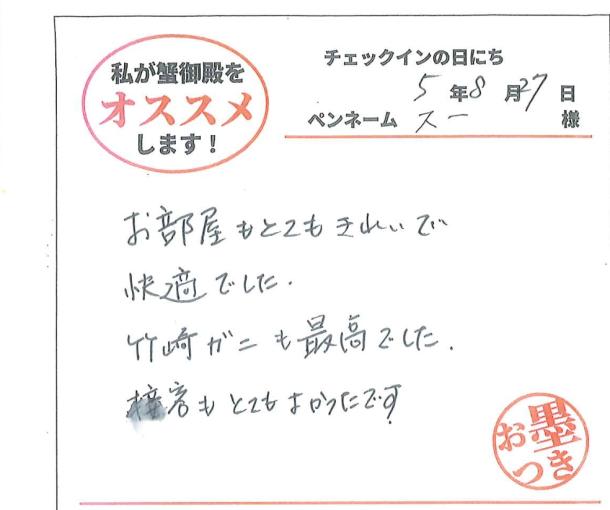 私が蟹御殿を
オススメ
します！
チェックインの日にち
5年8月27日
ペンネーム スー 様
お部屋もとてもきれいで
快適でした.
竹崎ガニも最高でした.
接客もとてもよかったです
お墨つき